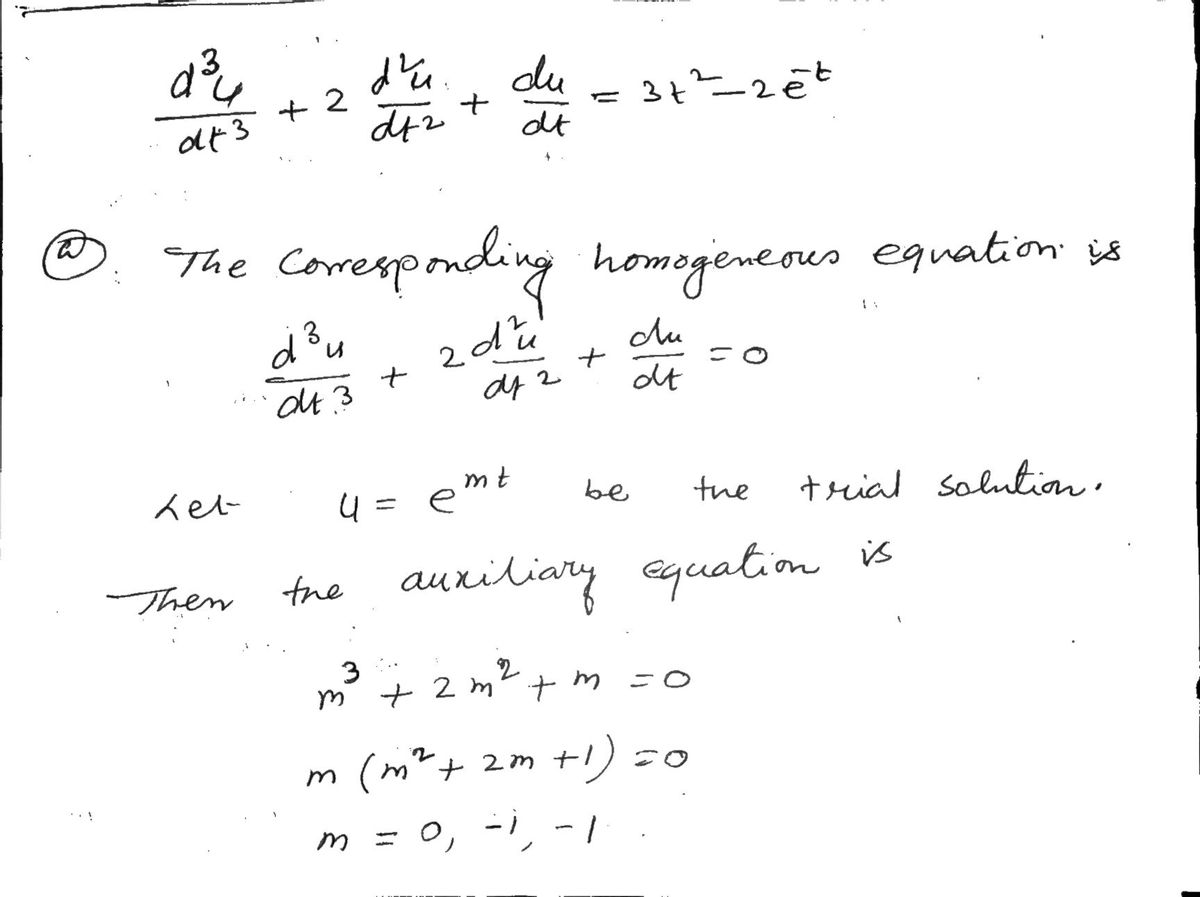 d³u/dt³ + 2 d²u/dt² + du/dt = 3t² - 2e⁻ᵗ
(a) The corresponding homogeneous equation is
d³u/dt³ + 2 d²u/dt² + du/dt = 0
Let u = e^{mt} be the trial solution.
Then the auxiliary equation is
m³ + 2m² + m = 0
m (m² + 2m + 1) = 0
m = 0, -1, -1.